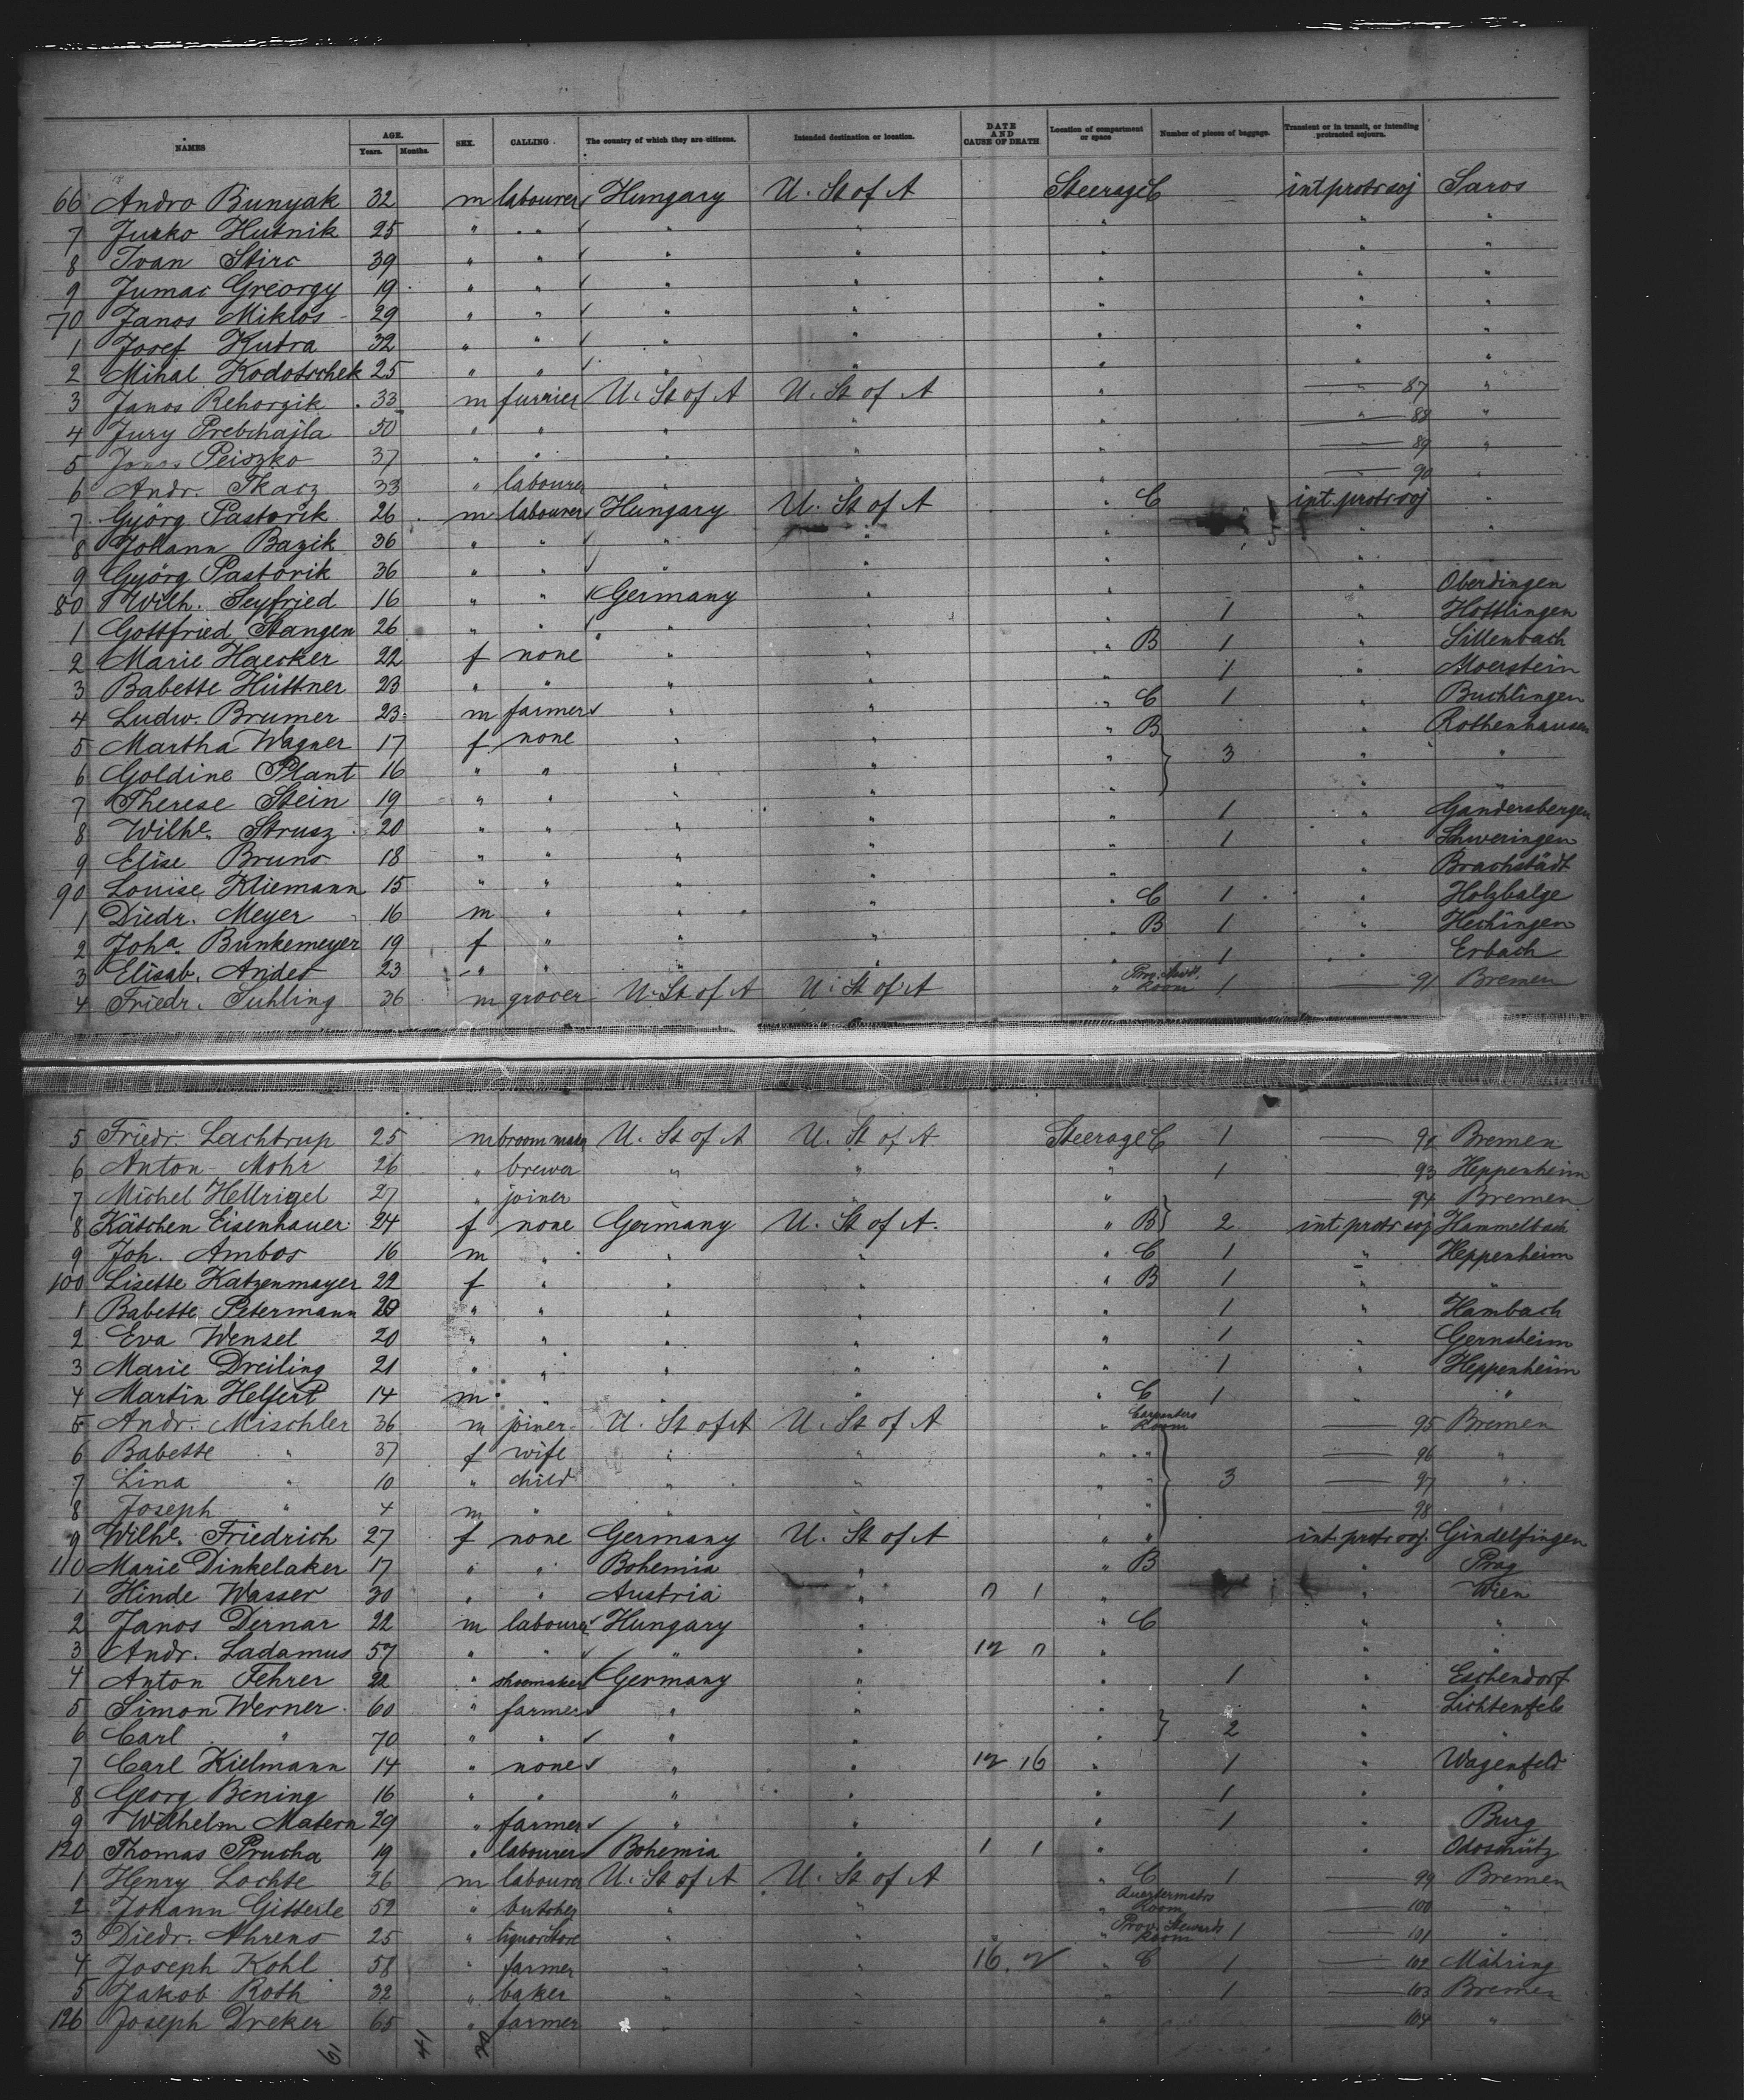 NAMES AGE. Years. Months. SEX. CALLING. The country of which they are citizens. Intended destination or location. DATE AND CAUSE OF DEATH Location of compartment or space Number of pieces of baggage. Transient or in transit, or intending protracted sojourn.
66 Andro Bunyak 32 m labourer Hungary U. St of A Steerage C int protr soj Saros
7 Jurko Hutnik 25 " " " " " " "
8 Ivan Stirc 39 " " " " " " "
9 Jumac Greorgy 19 " " " " " " "
70 Janos Miklos 29 " " " " " " "
1 Josef Kutra 32 " " " " " " "
2 Mihal Kodotschek 25 " " " " " " "
3 Janos Rehorzik 33 m furrier U. St of A U. St of A " " 87 "
4 Jury Prebchajla 50 " " " " " " 88 "
5 Janos Peiszko 37 " " " " " 89 "
6 Andr. Tkacz 33 " labourer " " " 90 "
7 Györg Pastorik 26 m labourer Hungary U. St of A " C int protr soj "
8 Johann Bazik 36 " " " " " " "
9 Györg Pastorik 36 " " " " " "
80 Wilh. Seyfried 16 " " Germany " " " Oberdingen
1 Gottfried Stangen 26 " " " " " 1 " Hottlingen
2 Marie Haecker 22 f none " " " B 1 " Sillenbach
3 Babette Hüttner 23 " " " " " 1 " Moerstein
4 Ludw. Brumer 23 m farmer " " " C 1 " Buchlingen
5 Martha Wagner 17 f none " " " B " Rothenhausen
6 Goldine Plant 16 " " " " " 3 " "
7 Therese Stein 19 " " " " " " "
8 Wilhe. Strusz 20 " " " " " 1 " Gandersbergen
9 Elise Bruns 18 " " " " " 1 " Schweringen
90 Louise Kliemann 15 " " " " " " Brachstädt
1 Diedr. Meyer 16 m " " " " C 1 " Holzbalge
2 Joha. Bunkemeyer 19 f " " " " B 1 " Hechingen
3 Elisab. Andes 23 " " " " " 1 " Erbach
4 Friedr. Suhling 36 m grocer U. St of A U. St of A " Room 1 91 Bremen
5 Friedr. Lachtrup 25 m broom maker U. St of A U. St of A Steerage C 1 92 Bremen
6 Anton Mohr 26 " brewer " " " 1 93 Heppenheim
7 Michel Hellrigel 27 " joiner " " " 94 Bremen
8 Kätchen Eisenhauer 24 f none Germany U. St of A. " B 2 int protr soj Hammelbach
9 Joh. Ambos 16 m " " " " C 1 " Heppenheim
100 Lisette Katzenmayer 22 f " " " " B 1 " "
1 Babette Petermann 20 " " " " " 1 " Hambach
2 Eva Wensel 20 " " " " " 1 " Gernsheim
3 Marie Dreiling 21 " " " " " 1 " Heppenheim
4 Martin Helfert 14 m " " " " C 1 " "
5 Andr. Mischler 36 m joiner U. St of A U. St of A " Carpenters Room 95 Bremen
6 Babette " 37 f wife " " " " 96 "
7 Lina " 10 " child " " " 3 97 "
8 Joseph " 4 m " " " " 98
9 Wilhe. Friedrich 27 f none Germany U. St of A " " int protr soj. Gindelfingen
110 Marie Dinkelaker 17 " " Bohemia " " B " Prag
1 Hinde Wasser 30 " " Austria " " " Wien
2 Janos Dernar 22 m labourer Hungary " " C " "
3 Andr. Ladamus 57 " " " " 12 " " "
4 Anton Fehrer 22 " shoemaker Germany " " 1 " Eschendorf
5 Simon Werner 60 " farmer " " " " Lichtenfels
6 Carl " 70 " " " " " 2 " "
7 Carl Kielmann 14 " none " " 12 16 " 1 " Wagenfeld
8 Georg Bening 16 " " " " " 1 " "
9 Wilhelm Matern 29 " farmer " " " 1 " Burg
120 Thomas Prucha 19 " labourer Bohemia " 1 1 " "
1 Henry Lochte 26 m labourer U. St of A U. St of A " C 1 99 Bremen
2 Johann Gitterle 52 " butcher " " " Room 100 "
3 Diedr. Ahrens 25 " liquor Store " " " Prov. Stewards Room 1 101 "
4 Joseph Kohl 58 " farmer " " 16 " C 1 102 Mähring
5 Jakob Roth 32 " baker " " " 1 103 Bremen
126 Joseph Dreker 65 " farmer " " " 104 "
61 41 20